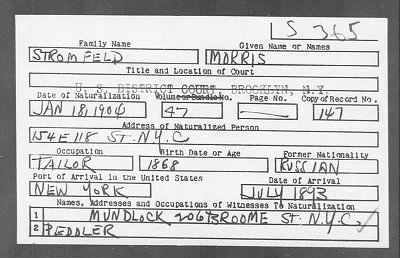 S 365
Family Name Given Name or Names
STROMFELD MORRIS
Title and Location of Court
U. S. DISTRICT COURT, BROOKLYN, N.Y.
Date of Naturalization Volume or Bundle No. Page No. Copy of Record No.
JAN 18, 1904 47 147
Address of Naturalized Person
154 E 118 ST. N.Y.C
Occupation Birth Date or Age Former Nationality
TAILOR 1868 RUSSIAN
Port of Arrival in the United States Date of Arrival
NEW YORK JULY 1893
Names, Addresses and Occupations of Witnesses To Naturalization
1 MUNDLOCK BROOME ST. N.Y.C.
2 PEDDLER